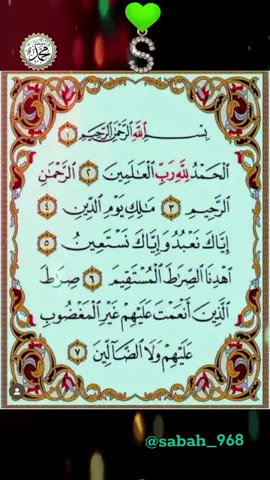 محمد
S
بِسْمِ ٱللَّهِ ٱلرَّحْمَٰنِ ٱلرَّحِيمِ ١
ٱلْحَمْدُ لِلَّهِ رَبِّ ٱلْعَٰلَمِينَ ٢ ٱلرَّحْمَٰنِ
ٱلرَّحِيمِ ٣ مَٰلِكِ يَوْمِ ٱلدِّينِ ٤
إِيَّاكَ نَعْبُدُ وَإِيَّاكَ نَسْتَعِينُ ٥
ٱهْدِنَا ٱلصِّرَٰطَ ٱلْمُسْتَقِيمَ ٦ صِرَٰطَ
ٱلَّذِينَ أَنْعَمْتَ عَلَيْهِمْ غَيْرِ ٱلْمَغْضُوبِ
عَلَيْهِمْ وَلَا ٱلضَّآلِّينَ ٧
@sabah_968